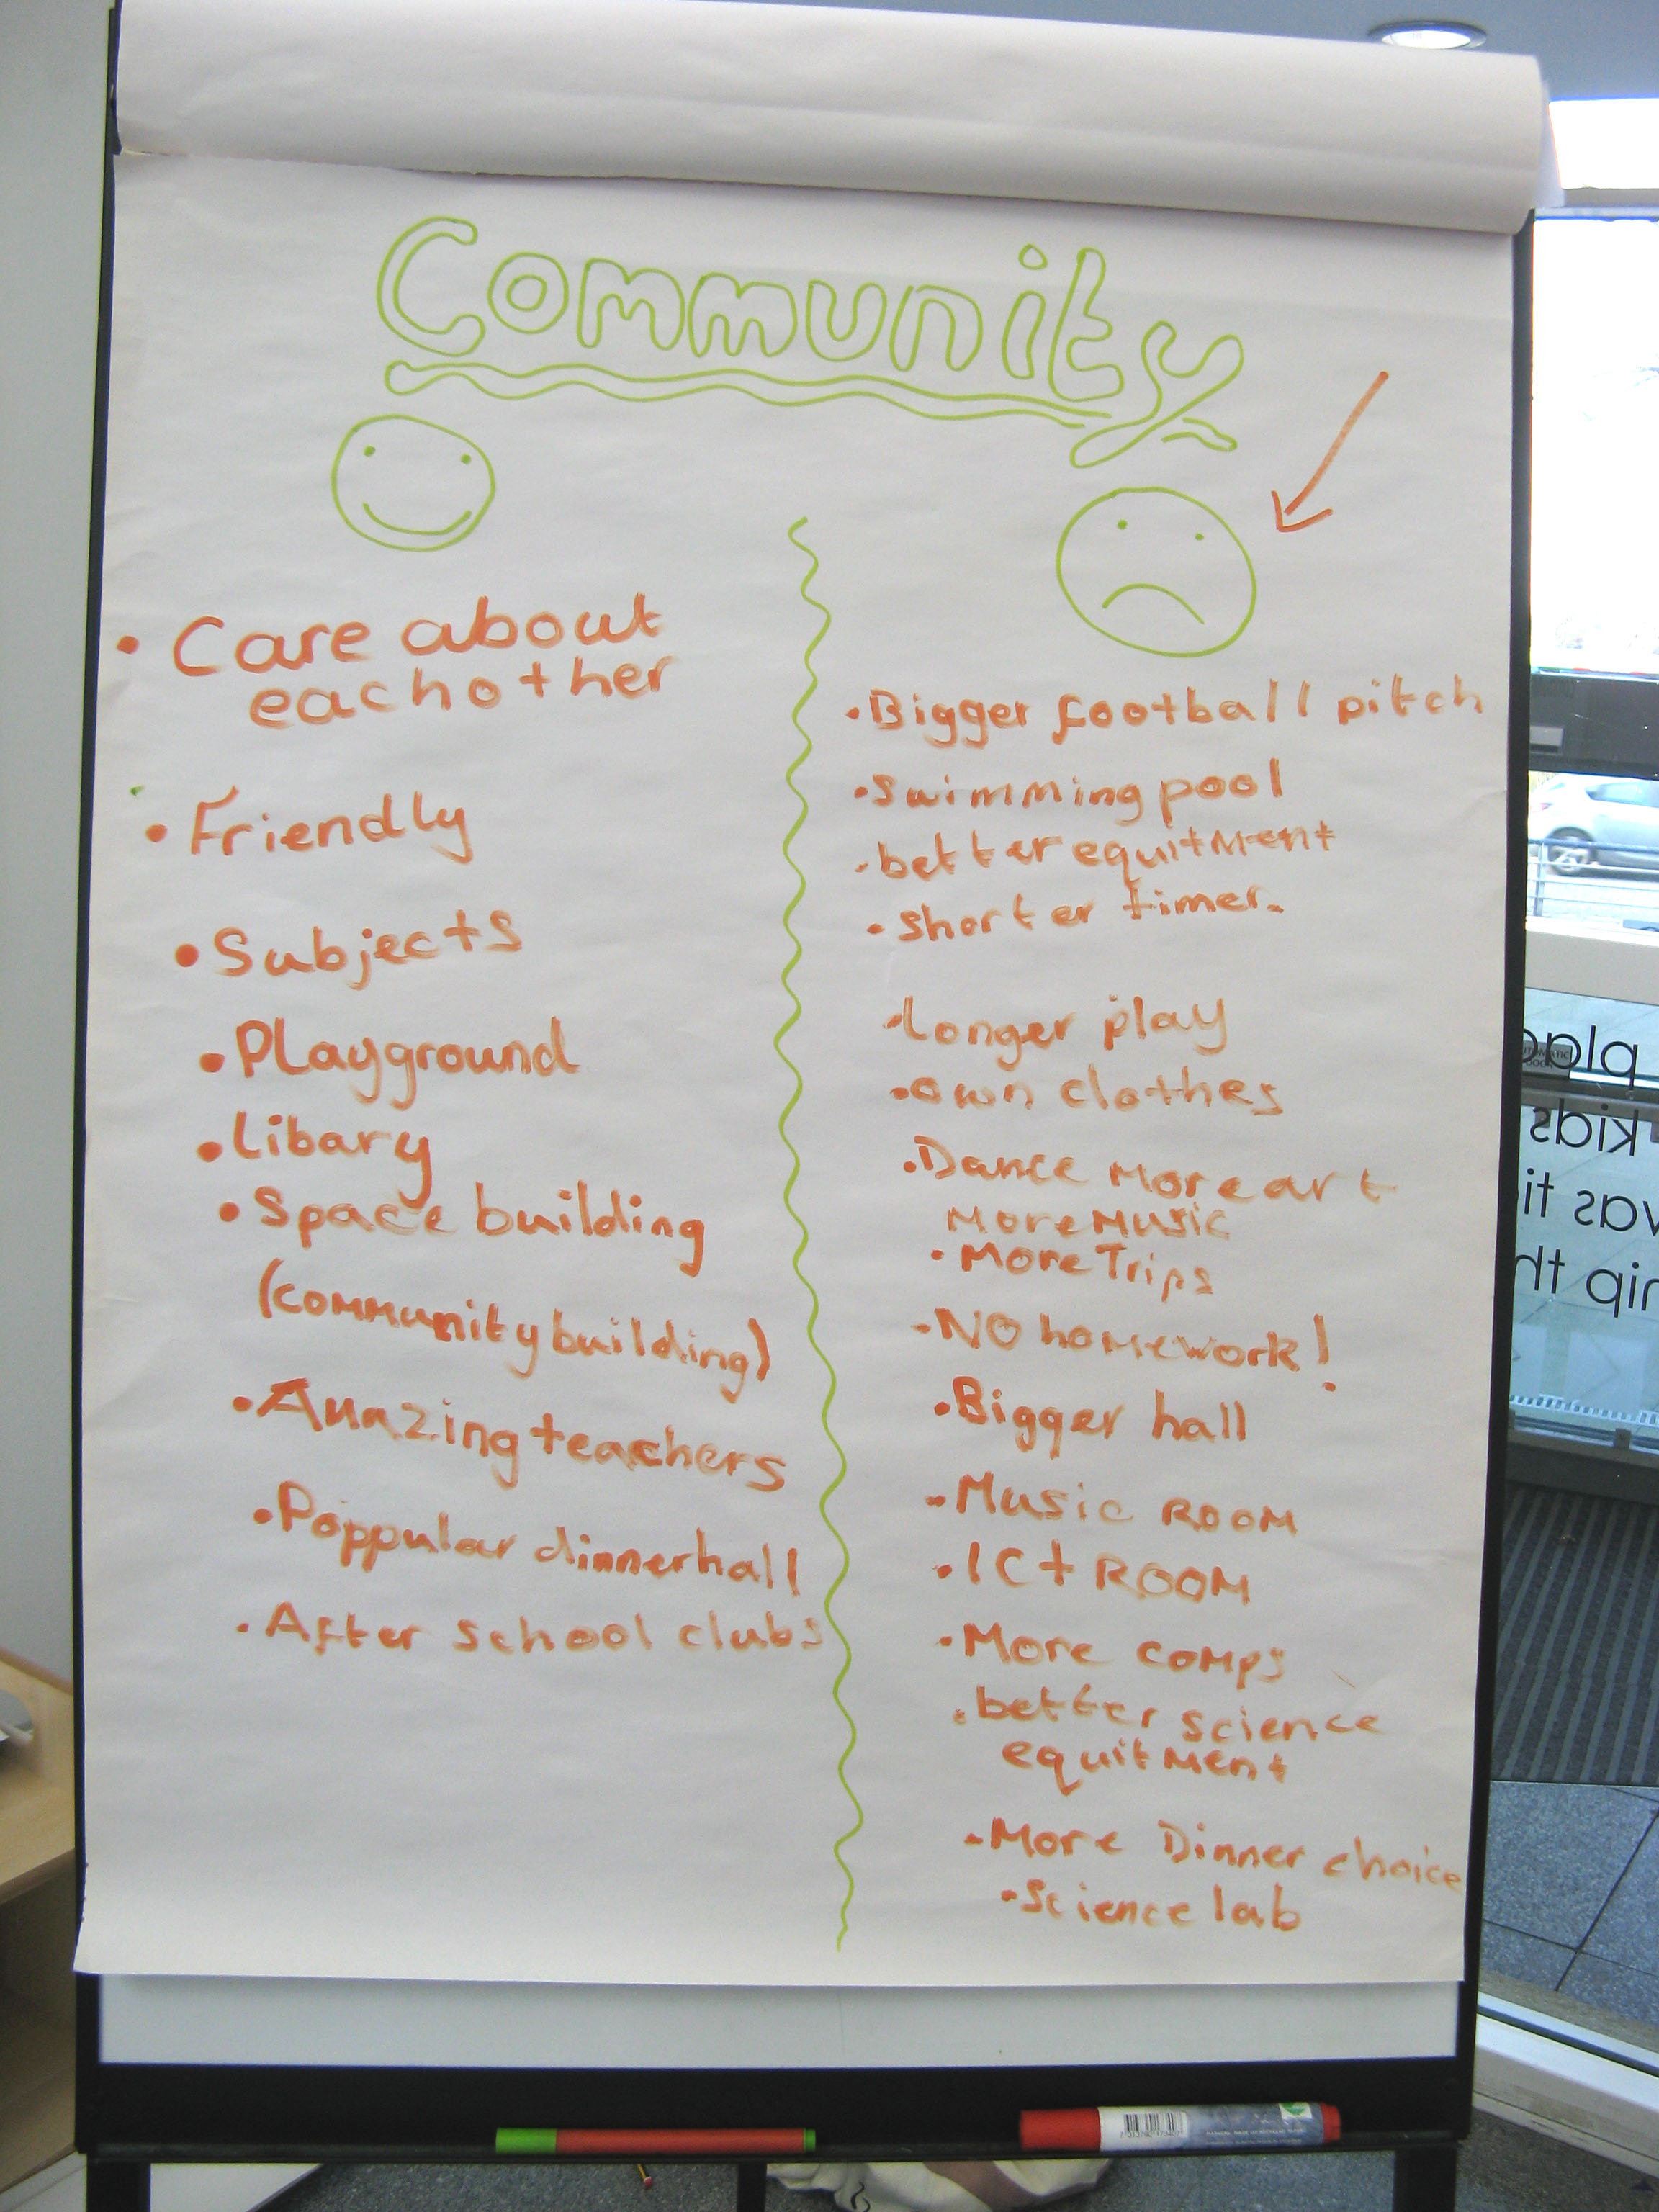 Community
• Care about
each other
• Friendly
• Subjects
• Playground
• Libary
• Space building
(community building)
• Amazing teachers
• Poppular dinner hall
• After school clubs
• Bigger football pitch
• swimming pool
• better equitment
• shorter timer.
• longer play
• own clothes
• Dance more art
more music
• More Trips
• NO homework!
• Bigger hall
• Music ROOM
• ICt ROOM
• More comps
• better science
equitment
• More Dinner choice
• Science lab
kids